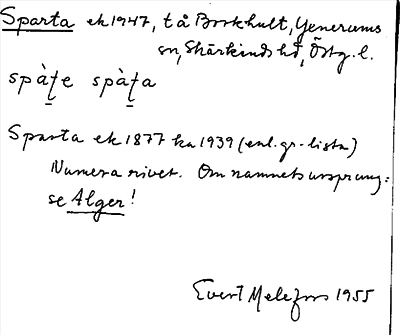 Sparta ek 1947, t å Borkhult, Yxnerums
sn, Skärkinds hd, Östg. l.
spàṭe spàṭa
Sparta ek 1877 ka 1939 (enl. gr-lista)
Numera rivet. Om namnets ursprung:
se Alger!
Evert Melefors 1955